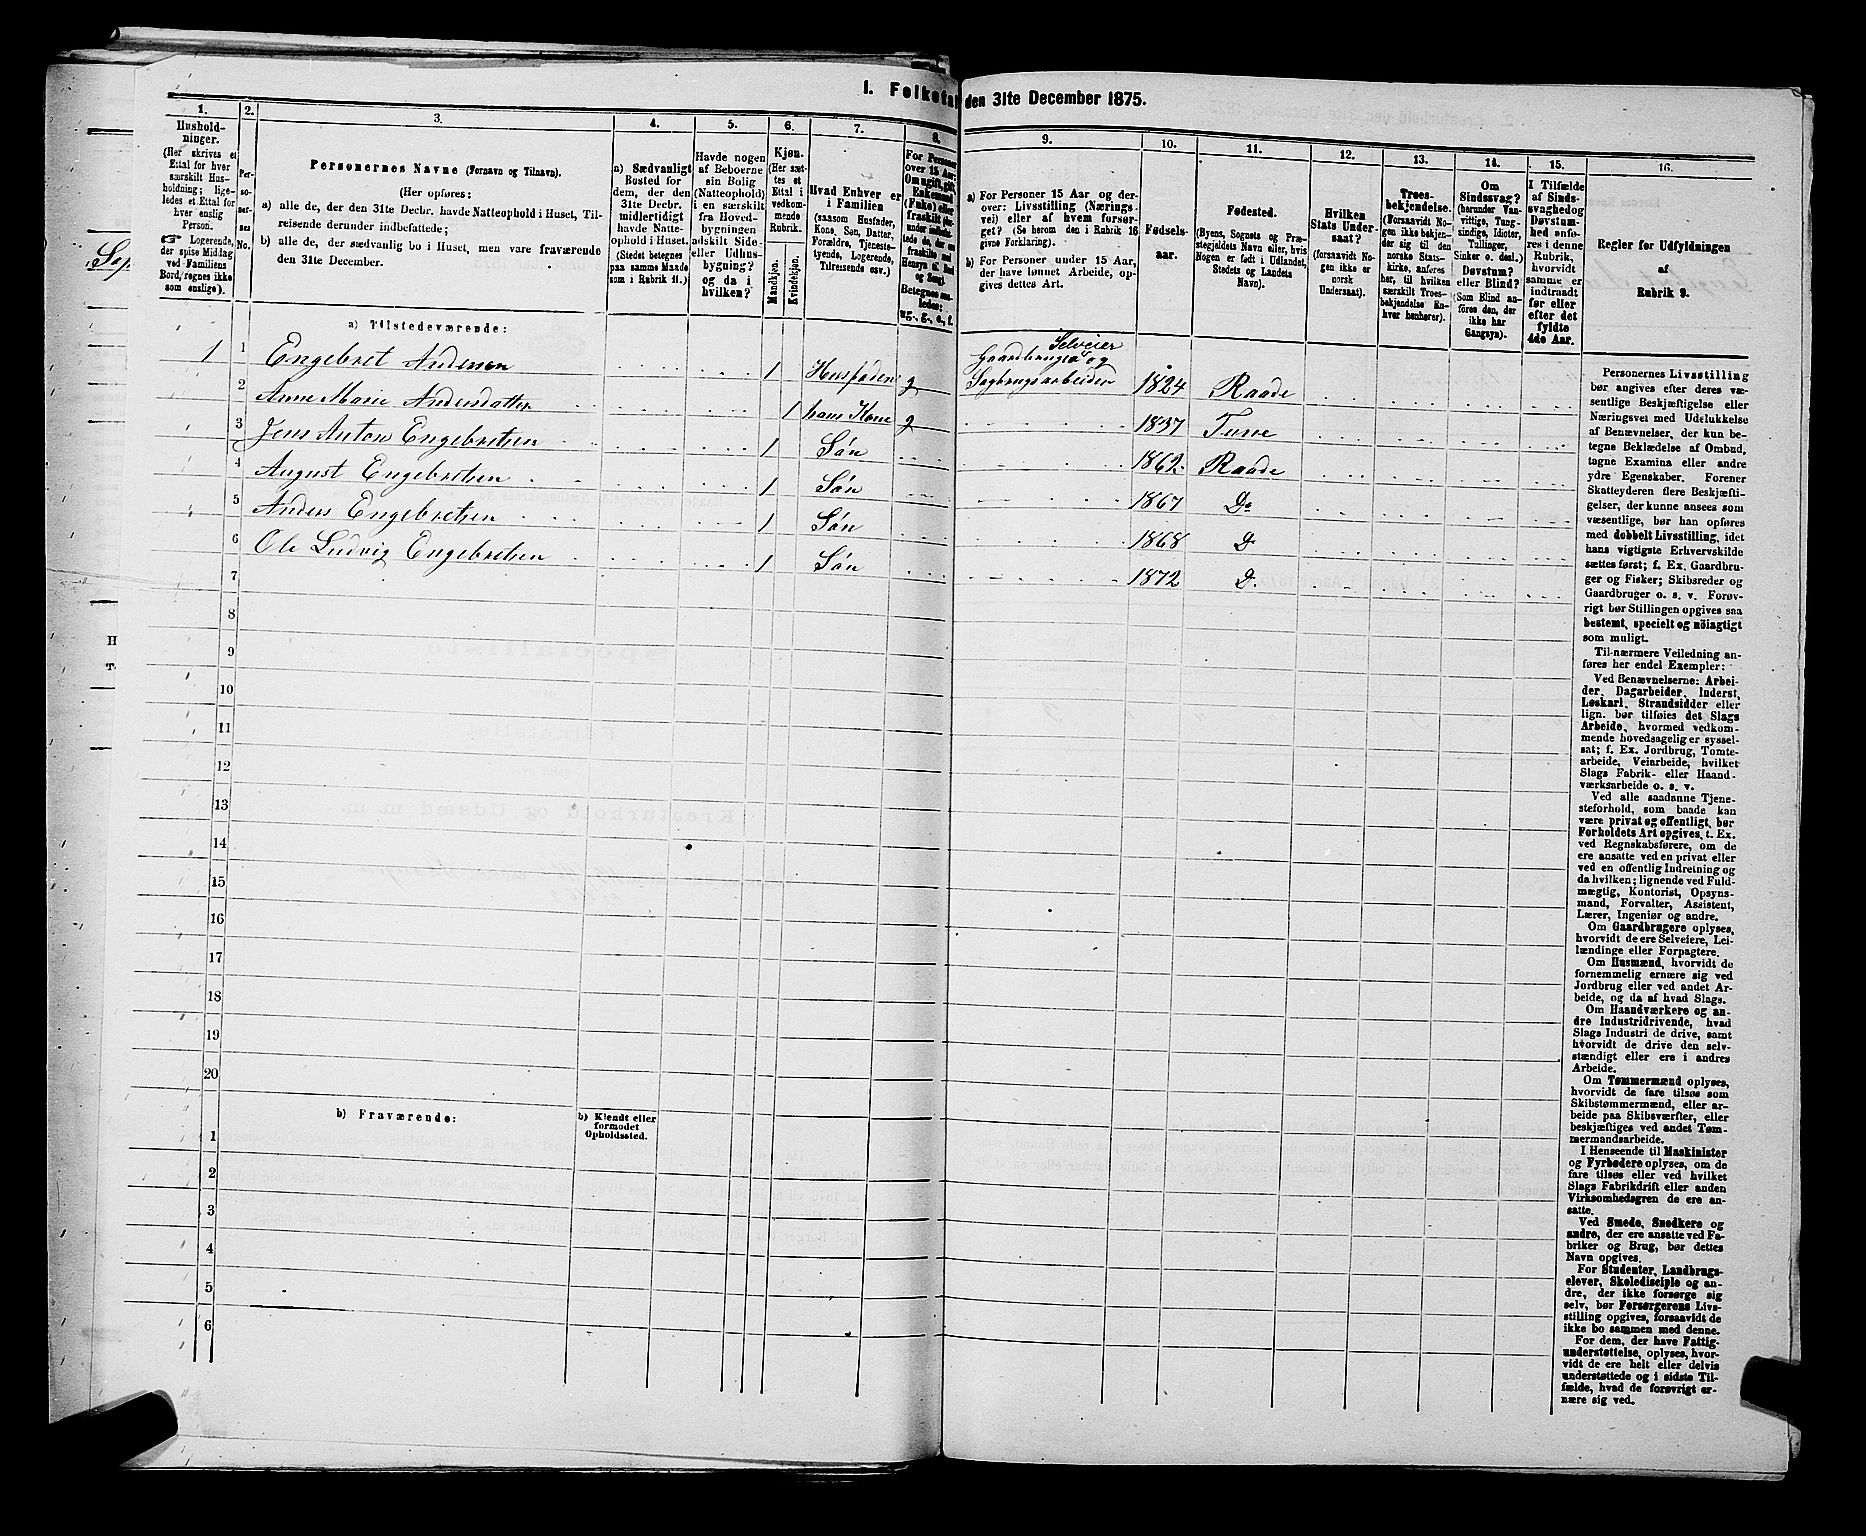 1. Folketal den 31te December 1875.
1.
Hushold-
ninger.
(Her skrives et
Ettal for hver
særskilt Hus-
holdning; lige-
ledes et Ettal for
hver enslig
Person.
☞ Logerende,
der spise Middag
ved Familiens
Bord, regnes ikke
som enslige).
2.
Per-
so-
ner-
nes
No.
3.
Personernes Navne (Fornavn og Tilnavn).
(Her opføres:
a) alle de, der den 31te Decbr. havde Natteophold i Huset, Til-
reisende derunder indbefattede;
b) alle de, der sædvanlig bo i Huset, men vare fraværende
den 31te December.
4.
a) Sædvanligt
Bosted for
dem, der den
31te Decbr.
midlertidigt
havde Natte-
ophold i Huset.
(Stedet betegnes
paa samme Maade
som i Rubrik 11.)
5.
Havde nogen
af Beboerne
sin Bolig
(Natteophold)
i en særskilt
fra Hoved-
bygningen
adskilt Side-
eller Udhus-
bygning?
og da i
hvilken?
6.
Kjøn.
(Her sæt-
tes et
Ettal i
vedkom-
mende
Rubrik.
Mandkjøn.
Kvindekjøn.
7.
Hvad Enhver er
i Familien
(saasom Husfader,
Kone, Søn, Datter,
Forældre, Tjeneste-
tyende, Logerende,
Tilreisende osv.)
8.
For Personer
over 15 Aar:
Om ugift, gift,
Enkemand
(Enke) eller
fraskilt
9.
a) For Personer 15 Aar og der-
over: Livsstilling (Nærings
vei) eller af hvem forsør-
get? (Se herom den i Rubrik 16
givne Forklaring).
b) For Personer under 15 Aar,
der have lønnet Arbeide, op-
gives dettes Art.
10.
Fødsels-
aar.
11.
Fødested.
(Byens, Sognets og Præ-
stegjeldets Navn eller, hvis
Nogen er født i Udlandet,
Stedets og Landets
Navn).
12.
Hvilken
Stats Under-
saat?
(forsaavidt No-
gen ikke er
norsk
Undersaat).
13.
Troes-
bekjendelse.
(Forsaavidt No-
gen ikke bekjen-
der sig til den
norske Stats-
kirke, anføres
her, til hvilken
særskilt Troes-
bekjendelse En-
hver henhører).
14.
Om
Sindssvag?
(herunder Van-
vittige, Tung-
sindige, Idioter,
Tullinger,
Sinker o. desl.)
Døvstum?
eller Blind?
(Som Blind an-
føres den, der
ikke har
Gangsyn).
15.
I Tilfælde
af Sinds-
svaghed og
Døvstum-
hed anfø-
res i denne
Rubrik,
hvorvidt
samme er
indtraadt
før eller
efter det
fyldte
4de Aar.
16.
Regler for Udfyldningen
af
Rubrik 9.
a) Tilstedeværende:
1 1 Engebret Andersen 1 Husfader g Gaardbruger Selveier og Sagbrugsarbeider 1824 Raade
2 Anne Marie Andersdatter 1 hans Kone g 1837 Tune
3 Jens Anton Engebretsen 1 Søn 1862 Raade
4 August Engebretsen 1 Søn 1867 Do
5 Anders Engebretsen 1 Søn 1868 D
6 Ole Ludvig Engebretsen 1 Søn 1872 D.
7
8
9
10
11
12
13
14
15
16
17
18
19
20
b) Fraværende:
b) Kjendt eller
formodet
Opholdssted.
1
2
3
4
5
6
Personernes Livsstilling
bør angives efter deres væ-
sentlige Beskjæftigelse eller
Næringsvei med Udelukkelse
af Benævnelser, der kun be-
tegne Beklædelse af Ombud,
tagne Examina eller andre
ydre Egenskaber. Forener
Skatteyderen flere Beskjæfti-
gelser, der kunne ansees som
væsentlige, bør han opføres
med dobbelt Livsstilling, idet
hans vigtigste Erhvervskilde
sættes først; f. Ex. Gaardbru-
ger og Fisker; Skibsreder og
Gaardbruger o. s. v. Forøv-
rigt bør Stillingen opgives saa
bestemt, specielt og nøiagtigt
som muligt.
Til nærmere Veiledning an-
føres her endel Exempler:
Ved Benævnelserne: Arbei-
der, Dagarbeider, Inderst,
Løskarl, Strandsidder eller
lign. bør tilføies det Slags
Arbeide, hvormed vedkom-
mende hovedsagelig er syssel-
sat; f. Ex. Jordbrug, Tomte-
arbeide, Veiarbeide, hvilket
Slags Fabrik- eller Haand-
værksarbeide o. s. v.
Ved alle saadanne Tjene-
steforhold, som baade kan
være privat og offentligt, bør
Forholdets Art opgives, t. Ex.
ved Regnskabsførere, om de
ere ansatte ved en privat eller
ved en offentlig Indretning og
da hvilken; lignende ved Fuld-
mægtig, Kontorist, Opsyns-
mand, Forvalter, Assistent,
Lærer, Ingeniør og andre.
Om Gaardbrugere oplyses,
hvorvidt de ere Selveiere, Lei-
lændinge eller Forpagtere.
Om Husmænd, hvorvidt de
fornemmelig ernære sig ved
Jordbrug eller ved andet Ar-
beide, og da af hvad Slags.
Om Haandværkere og an-
dre Industridrivende, hvad
Slags Industri de drive, samt
hvorvidt de drive den selv-
stændigt eller ere i andres
Arbeide.
Om Tømmermænd oplyses,
hvorvidt de fare tilsøs som
Skibstømmermænd, eller ar-
beide paa Skibsværfter, eller
beskjæftiges ved andet Tøm-
mermandsarbeide.
I Henseende til Maskinister
og Fyrbødere oplyses, om de
fare tilsøs eller ved hvilket
Slags Fabrikdrift eller anden
Virksomhedsgren de ere an-
satte.
Ved Smede, Snedkere og
andre, der ere ansatte ved Fa-
briker og Brug, bør dettes
Navn opgives.
For Studenter, Landbrugs-
elever, Skoledisciple og an-
dre, der ikke forsørge sig
selv, bør Forsørgerens Livs-
stilling opgives, forsaavidt de
ikke bo sammen med denne.
For dem, der have Fattig-
understøttelse, oplyses, hvor-
vidt de ere helt eller delvis
understøttede og i sidste Til-
fælde, hvad de forøvrigt er-
nære sig ved.